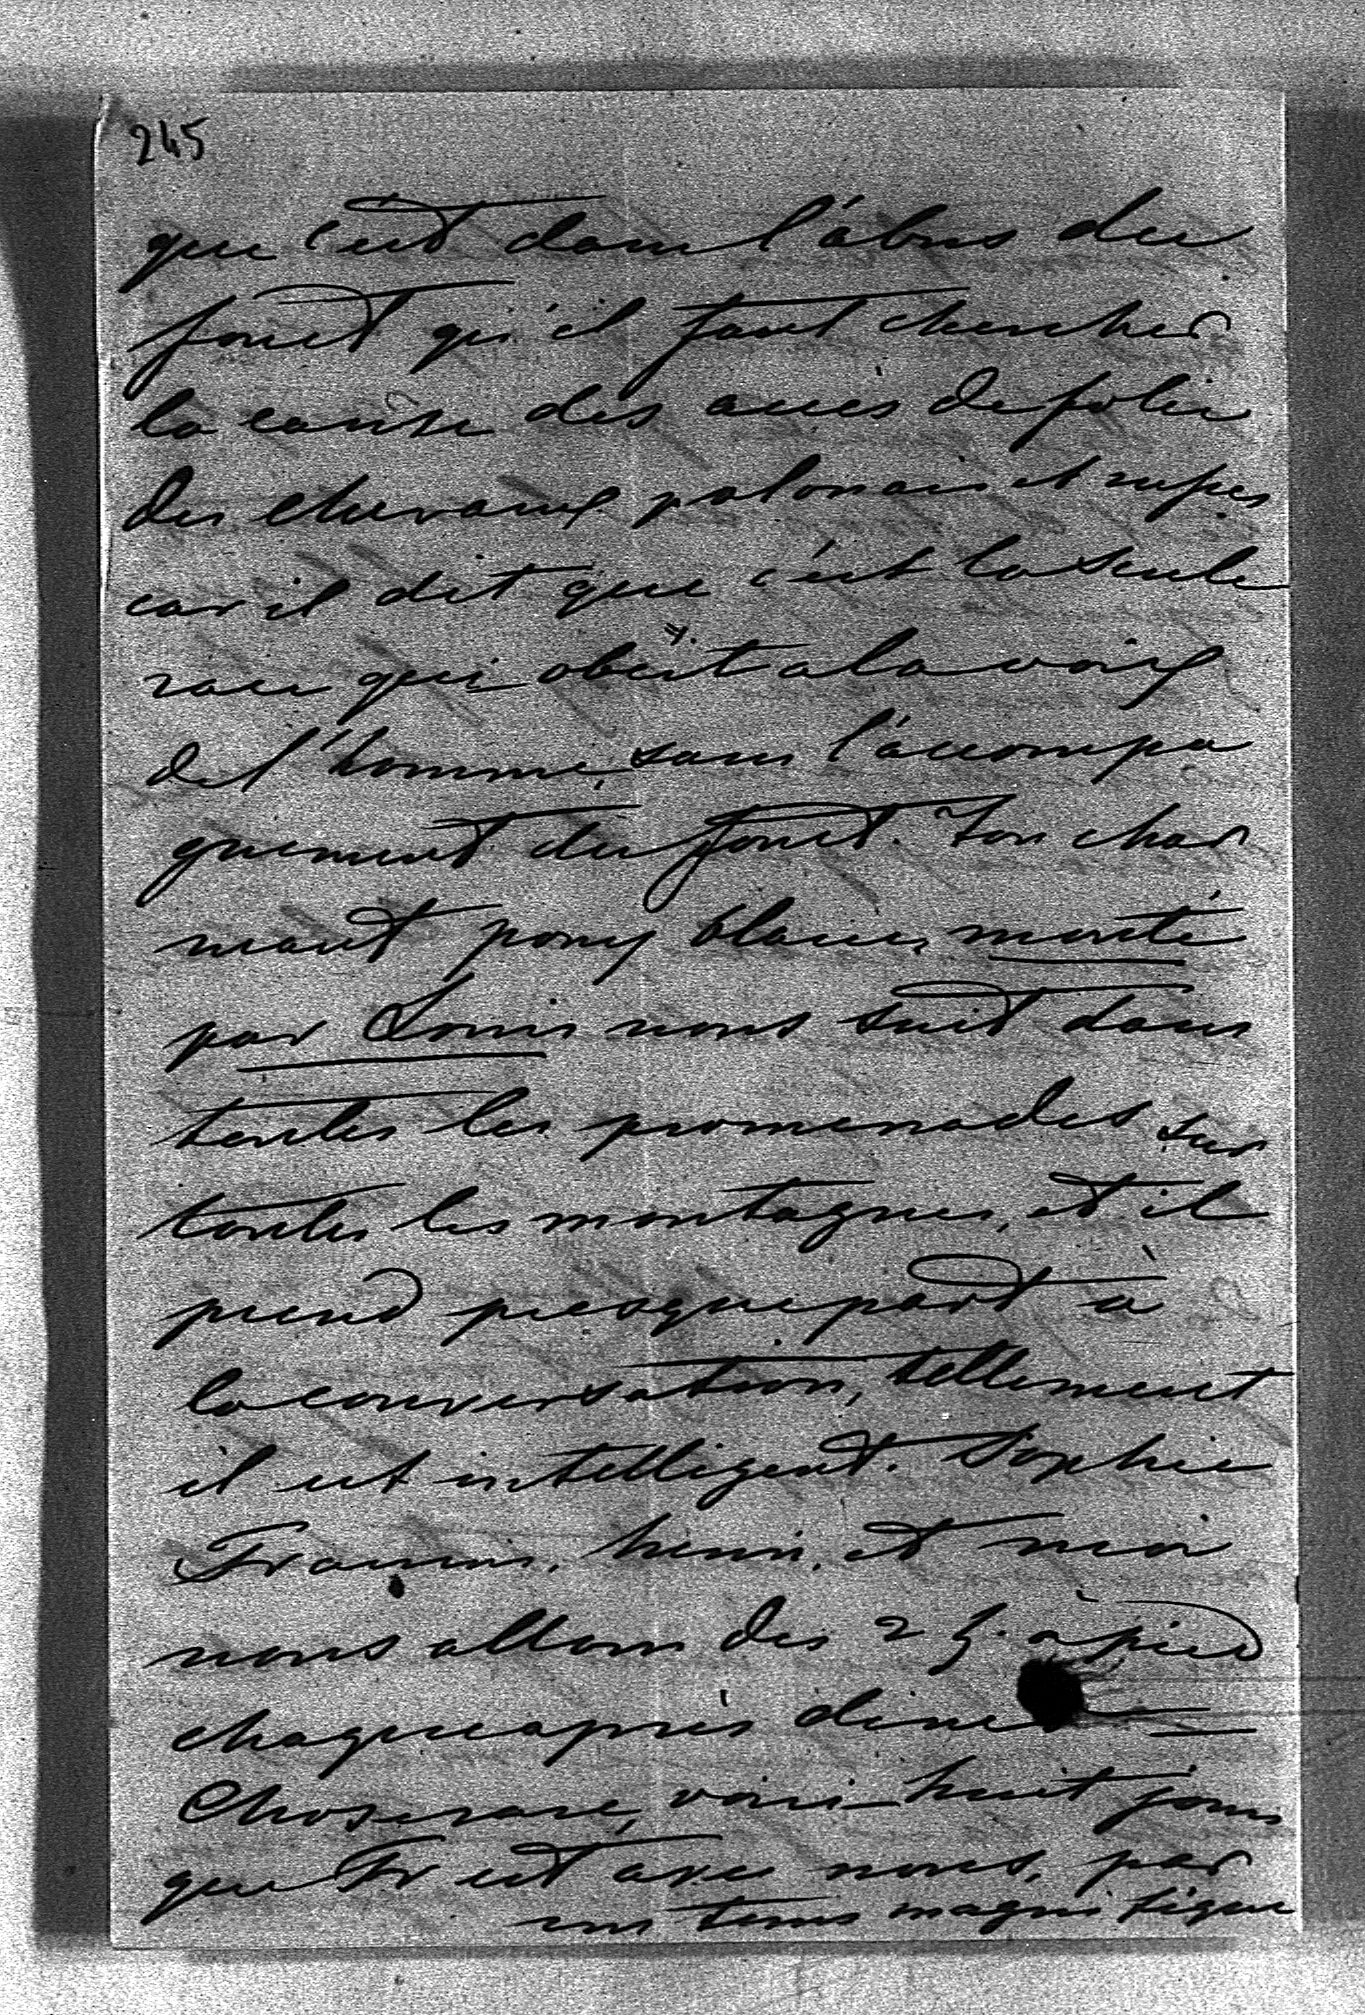 245
que c'est dans l'abus du
fouet qu'il faut chercher
la cause des accès de folie
des chevaux polonais et russes
car il dit que c'est la seule
race qui obéit a la voix
de l'homme, sans l'accompa
gnement du fouet. Ton char
mant pony blanc, monté
par Louis nous suit dans
toutes les promenades sur
toutes les montagnes, et il
prend presque part à
la conversation, tellement
il est intelligent. Sophie
Francis, henri, et moi
nous allons des 2 h. à pied
chaque après diner
Chose rare, voici huit jours
que Fr est avec nous, par
un tems magnifique